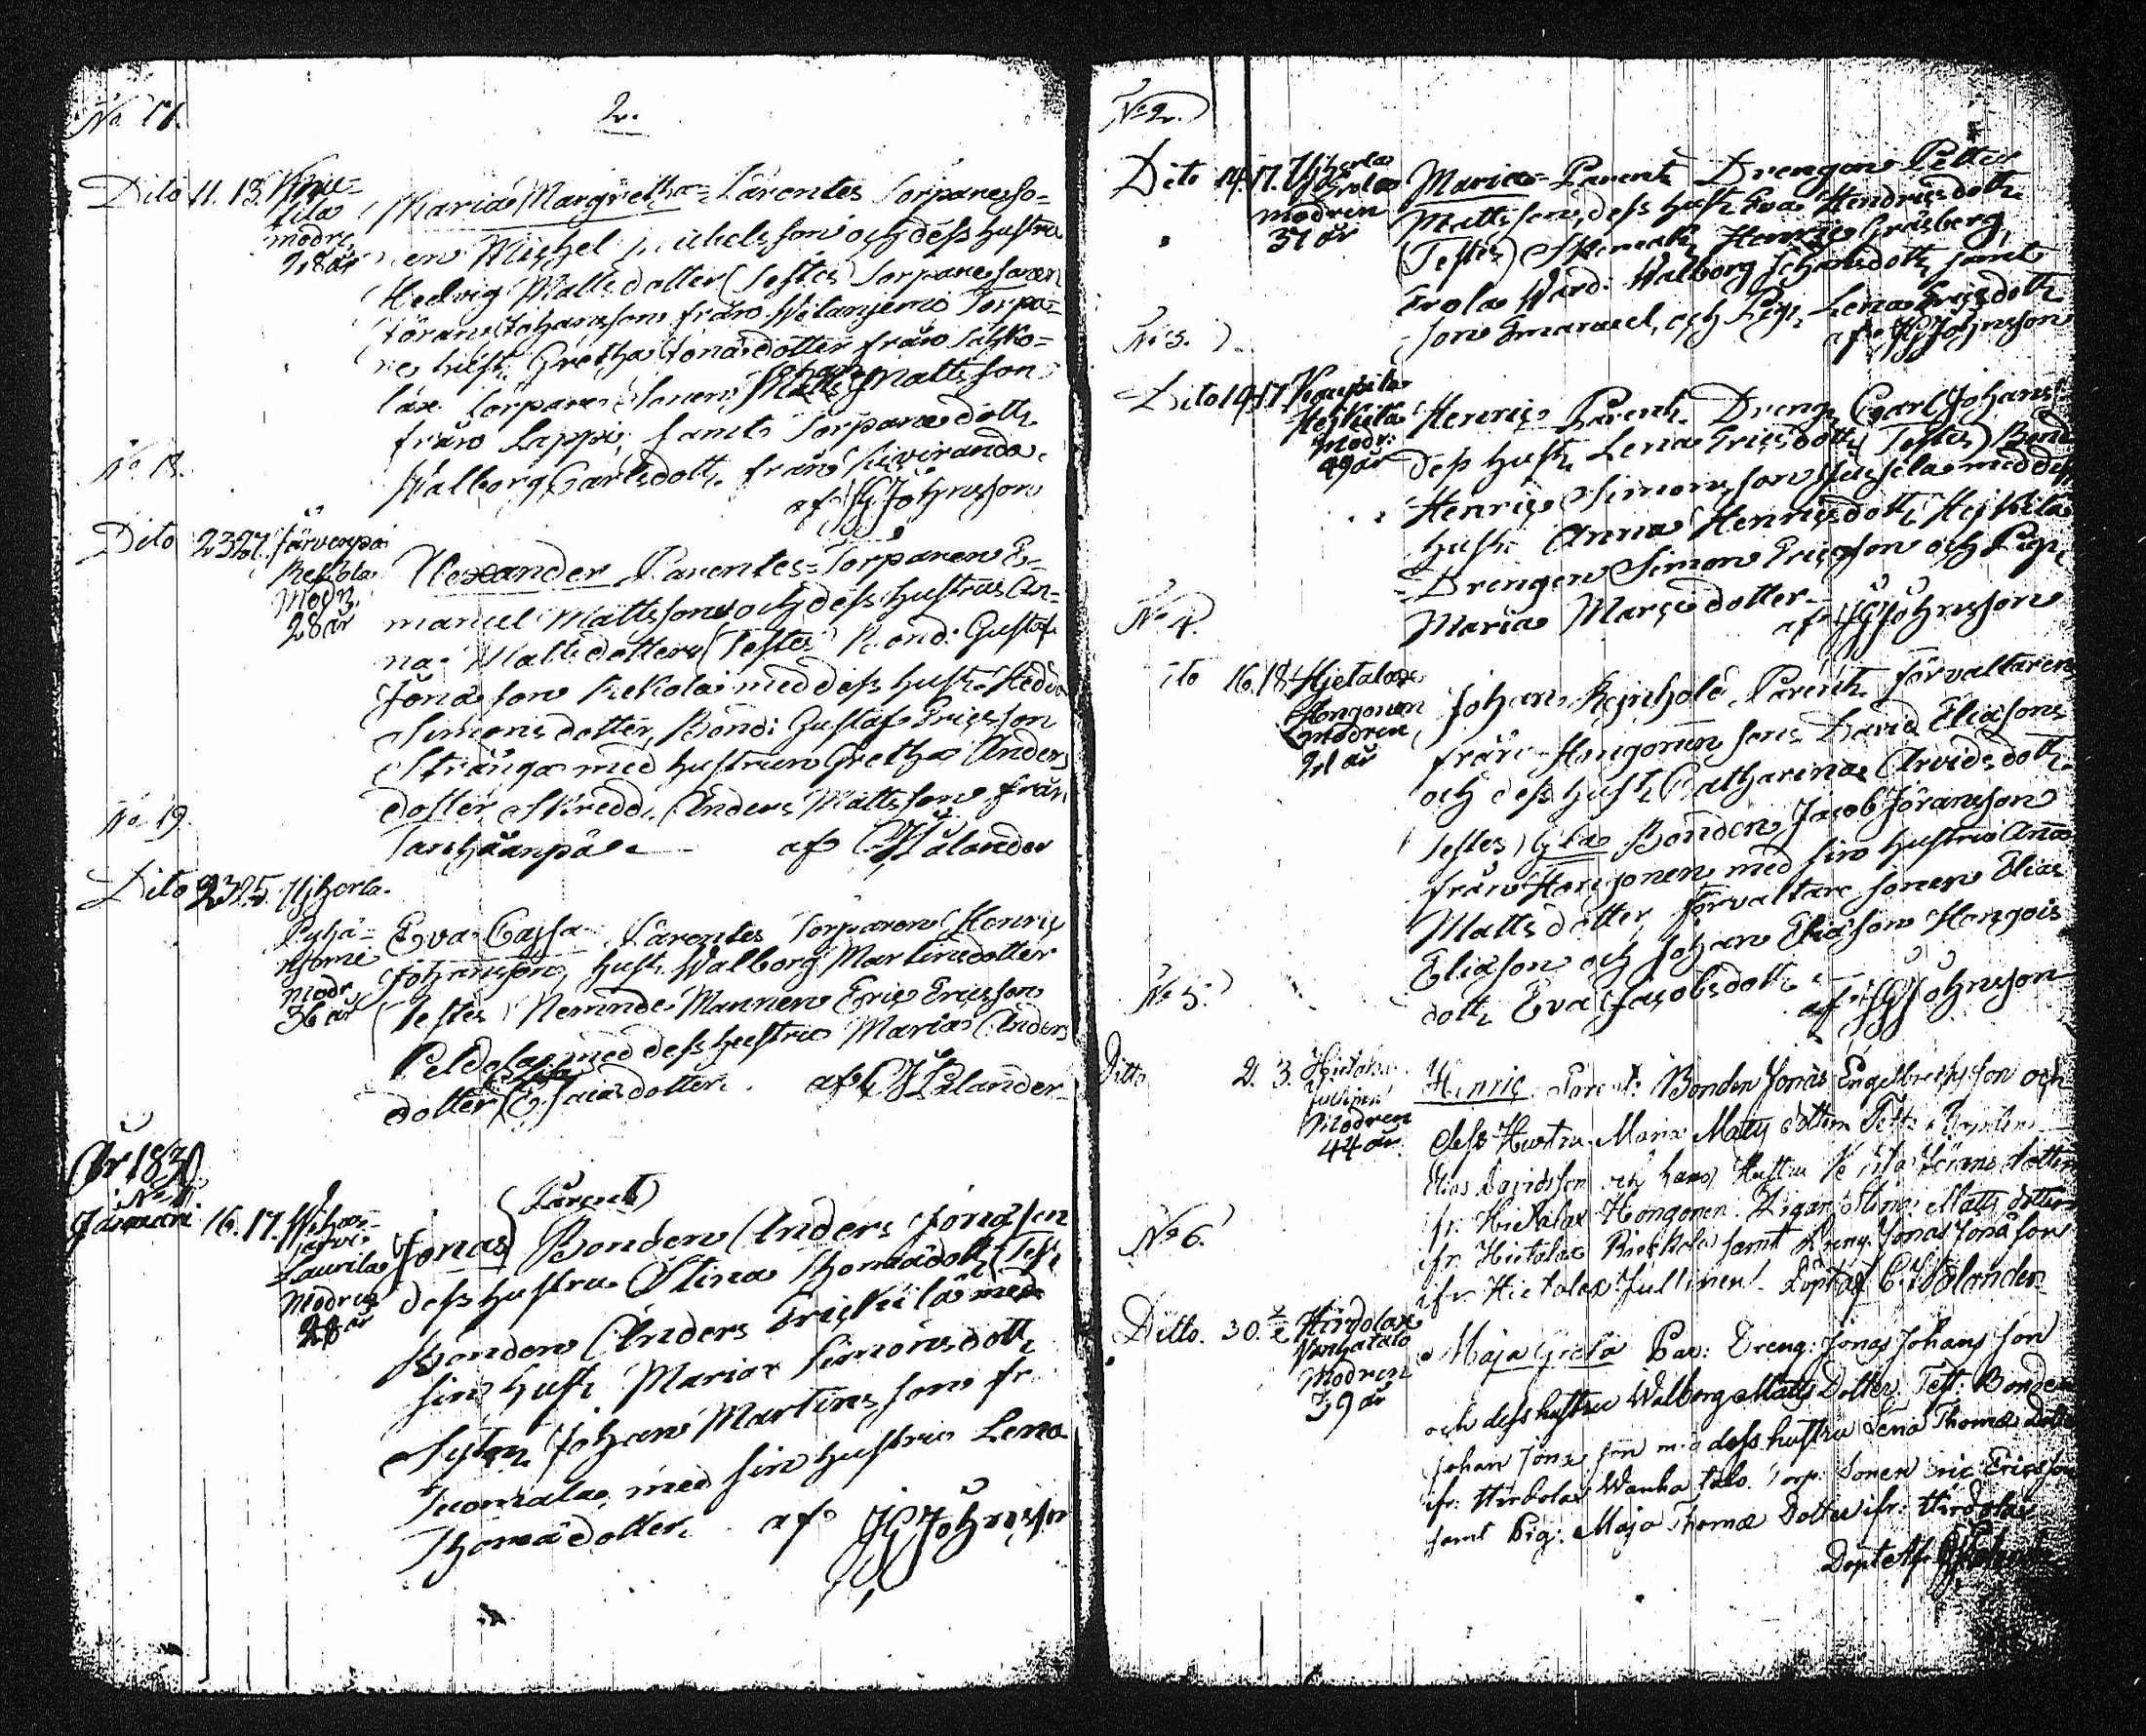 No 17.
2.
Dito 11. 13.
modr.
28 år
Maria Margretha Parentes Torpareso-
nen Michel Michelsson och dess hustru
Hedvig Matts dotter (Testes) Torparesonen
Jöran Johansson från Torpa-
re hust. Gretha Jonædotter från Sahko-
lax Torpare Sonen Johan Mattsson
från Lappi, samt Torpare dott.
Walborg Carlsdott. från Kiviranda.
af JGJohnsson
No 18.
Dito 23 27. Järvenpä
Reskola
Modr.
28 år
Alexander Parentes Torparen E-
manuel Mattsson och dess hustru An-
na Mattsdotter (Testes) Bond. Gustaf
Jonæson med dess hust. Hedda
Simonsdotter, Bond: Gustaf Ericsson
Stränga med hustrun Gretha Anders
dotter Skredd. Anders Mattsson från
af CJWålander
No 19.
Dito 23 25. Hjherla
Pyhä-
modr
36 år
Eva Cajsa Parentes Torparen Henric
Johansson, hust. Walborg Martinsdotter
(Testes) Nemnde Mannen Eric Ericsson
Peldola med dess hustru Maria Anders
dotter af CJWålander
År 1830
No 1.
Januari 16. 17.
Laurila
Modren
28 år
(Parent)
Jonas Bonden Anders Jonæson
dess hustru Stina Thomædott. (Test.
Bonden Anders Erickilä med
sin hust. Maria Simonsdott.
Sytn. Johan Martinsson fr.
Tuomala, med sin hustru Lena
Thomædotter. af JGJohnsson
No 2.
Dito 14. 17. Hjherla
Erola
modren
37 år
Maria Parent. Drengen Petter
Mattsson, dess hust. Eva Hendricsdott.
(Testes) Henric Gråsberg,
Erola Wärd. Walborg Johansdott. samt
son Emanuel, och Pig. Lena Ericsdott.
af JGJohnsson
No 3.
Dito 14 17 Koupila
Hejkila
modr:
49 år
Henric Parent. Dreng Carl Johans
dess hust. Lena Ericsdott. (Testes) Bond
Henric Simonsson Jussila med dess
hust. Anna Henricsdott. Hejkila
Drengen Simon Ericsson och Pig.
Maria Marcædotter
af JGJohnsson
No 4.
ito 16. 18 Hjetalax
Hongonen
modren
21 år
Johan Rejnhold Parent. förvaltaren
från Hongonen son David Eliæson
och dess hust. Catharina Arvidsdott.
Testes) Bonden Jacob Jöransson
från Hongonen med sin hustru Anna
Mattsdotter, förvaltare sonen Elias
Eliæson och Johan Eliæson Hongois
dott. Eva Jacobsdott.
af JGJohnsson
No 5.
Ditto 2. 3. Hjetalax
Jullinen
Modren
44 år
Henric Parent: Bonden Jonas Engelbrechtsson och
dess Hustru Maria Matts dotter Test:
Elias Davidsson och hans Hustru Jörans dotter
ifr. Hietalax Hongonen. Pigan Stina Matts dotter
ifr. Hietalax samt Dreng. Jonas Jonæson
ifr. Hietalax Jullinen. Döpt af CJWålander
No 6.
Ditto. 30. 2/2 Hirdolax
Vanhatalo
Modren
39 år
Maja Greta Par: Dreng: Jonas Johansson
och dess hustru Walborg Matts Dotter. Test: Bonden
Johan Jonæ son med dess hustru Lena Thomæ dotter
ifr. Hirdolax Wanha talo. Torp: Sonen Eric Ericsson
samt Pig: Maja Thomæ Dotter ifr: Hirdolax
Döpt af